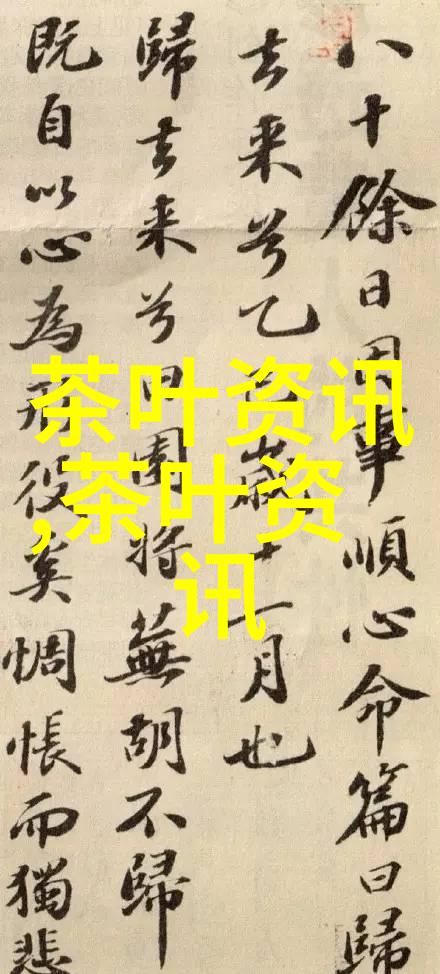 八十餘日因事順心命篇曰歸
去来兮乙巳歲十一月也
歸去来兮田園将蕪胡不歸
既自以心為形役奚惆悵而獨悲
茶叶资讯
,茶叶资
讯